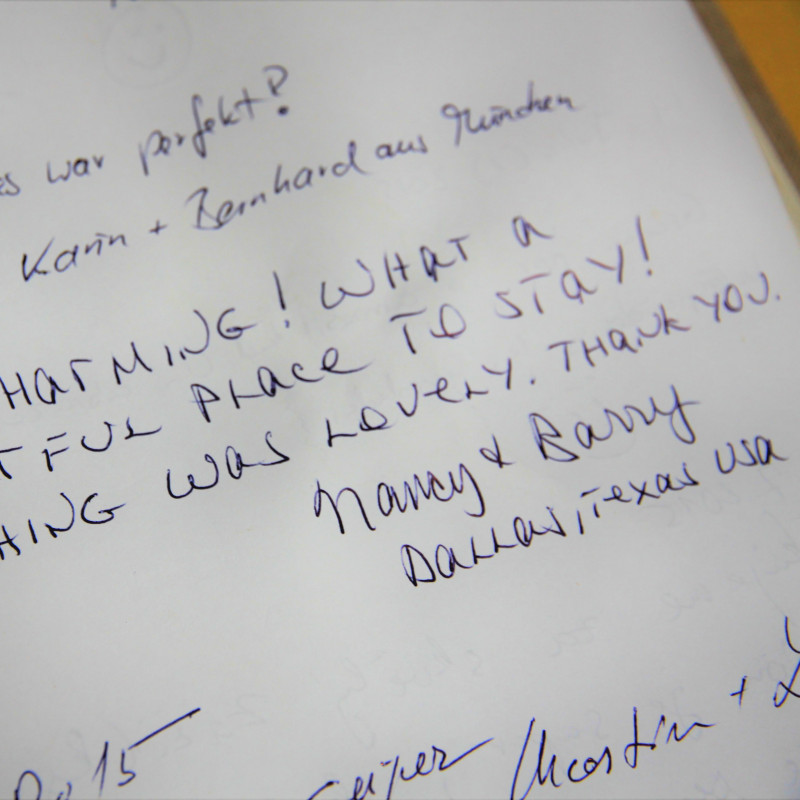 es war perfekt!
Karin + Bernhard aus München
HARMING! WHAT A
TFUL PLACE TO STAY!
HING WAS LOVELY. THANK YOU.
Nancy & Barry
DALLAS, TEXAS USA
15
Martin +